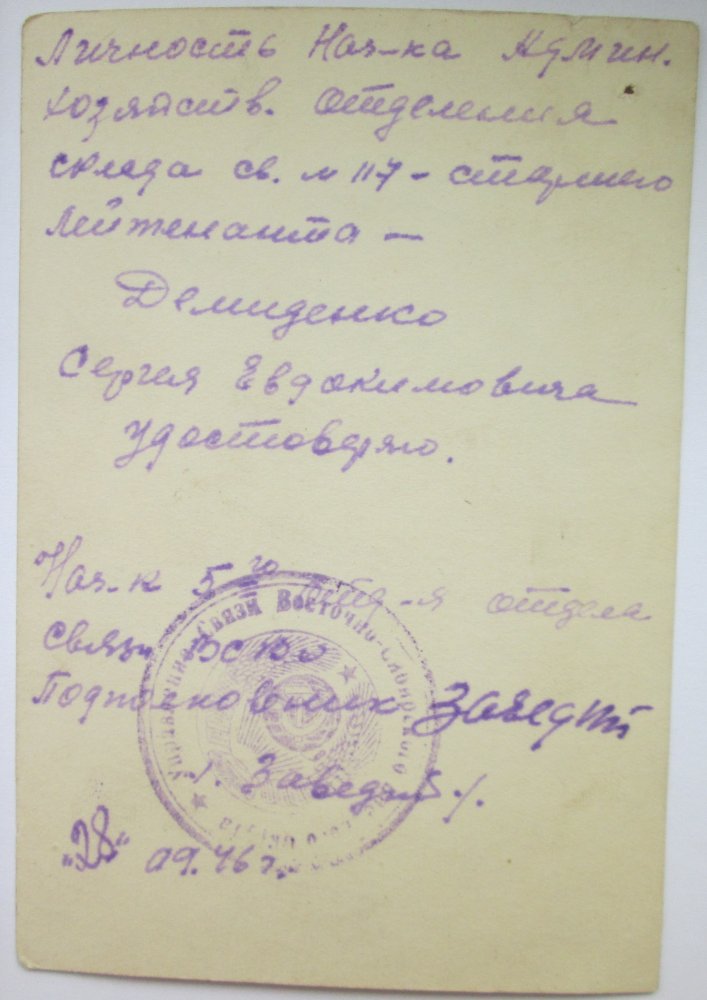 Личность Нач-ка Админ.
хозяйств. отделения
склада св. № 117 - старшего
лейтенанта -
Демиденко
Сергея Евдокимовича
удостоверяю.
Нач-к 5го отд-я отдела
связи ВСВО
Подполковник
/. Заведят ./.
"28" 09.46 г.
Управление Связи Восточно-Сибирского